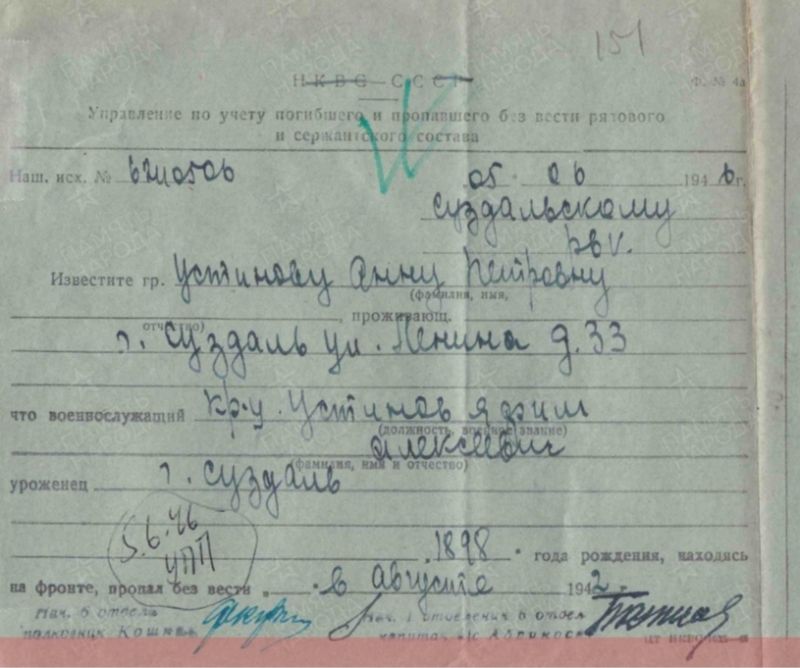 151
НКВС СССР
Ф. № 4а
Управление по учету погибшего и пропавшего без вести рядового
и сержантского состава
Наш. исх. № 6210506
05 06 1946 г.
Суздальскому
рвк.
Известите гр. Устинову Анну Петровну
(фамилия, имя,
, проживающ.
отчество)
г. Суздаль ул. Ленина д. 33
что военнослужащий кр-ц Устинов Яфим
(должность, военное звание)
Алексеевич
(фамилия, имя и отчество)
уроженец г. Суздаль
5.6.46
УПП
1898 года рождения, находясь
на фронте, пропал без вести в августе 1942 г.
Нач. 6 отдела Нач. 1 отделения 6 отдел
полковник капитан